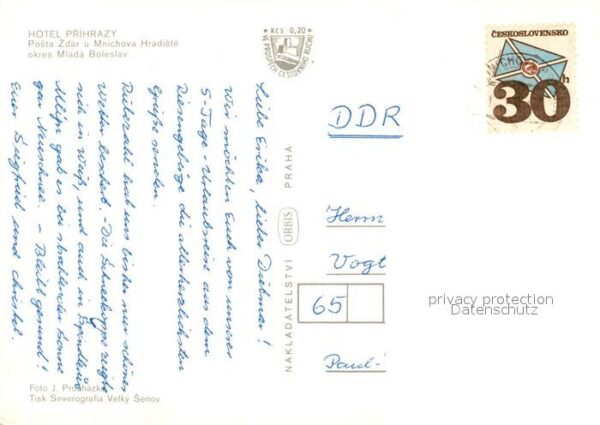 HOTEL PŘÍHRAZY
Pošta Žďár u Mnichova Hradiště
okres Mladá Boleslav
Kčs 0,20
VE PROSPĚCH CESTOVNÍHO RUCHU
ČESKOSLOVENSKO
30h
Liebe Erika, lieber Dietmar!
Wir möchten Euch von unserer
5-Tage-Urlaubsreise aus dem
Riesengebirge die allerherzlichsten
Grüße senden.
Rübezahl hat uns bisher nur schönes
Wetter beschert. - Die Schneekoppe zeigte
sich in Weiß, und auch in
gab es bei strahlender Sonne
Neuschnee. - Bleibt gesund!
Eure Siegfried und Christel.
DDR
Herrn
Vogt
65
Paul-
NAKLADATELSTVÍ ORBIS PRAHA
privacy protection
Datenschutz
Foto J. Procházka
Tisk Severografia Velký Šenov